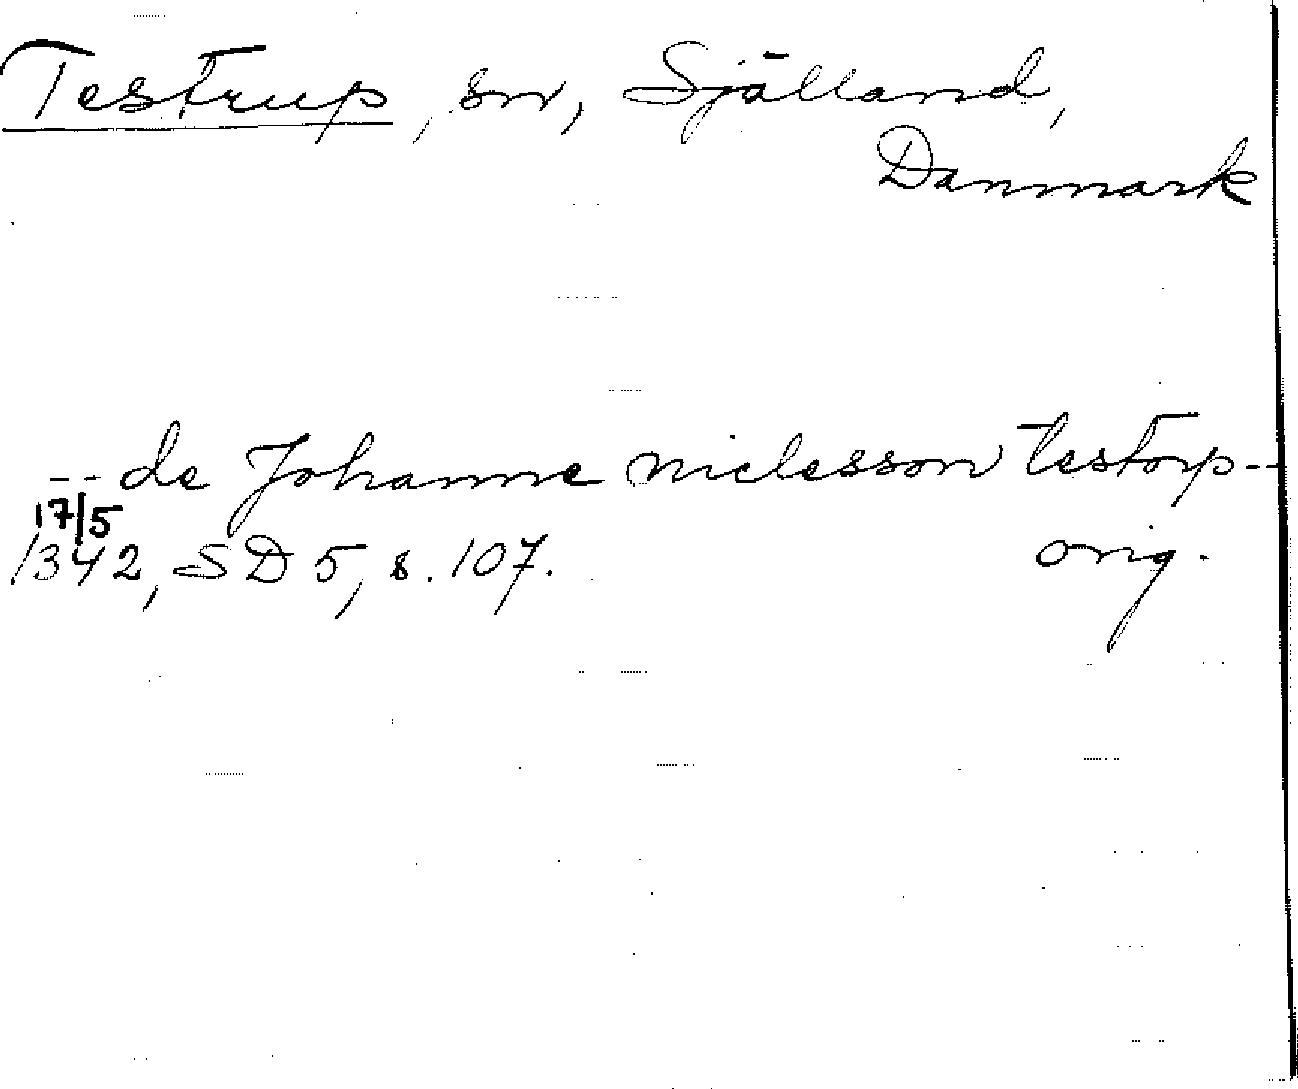 Testrup, sn, Själland,
Danmark
-- de Johanne nielesson testorp --
17/5
1342, SD 5, s. 107. orig.